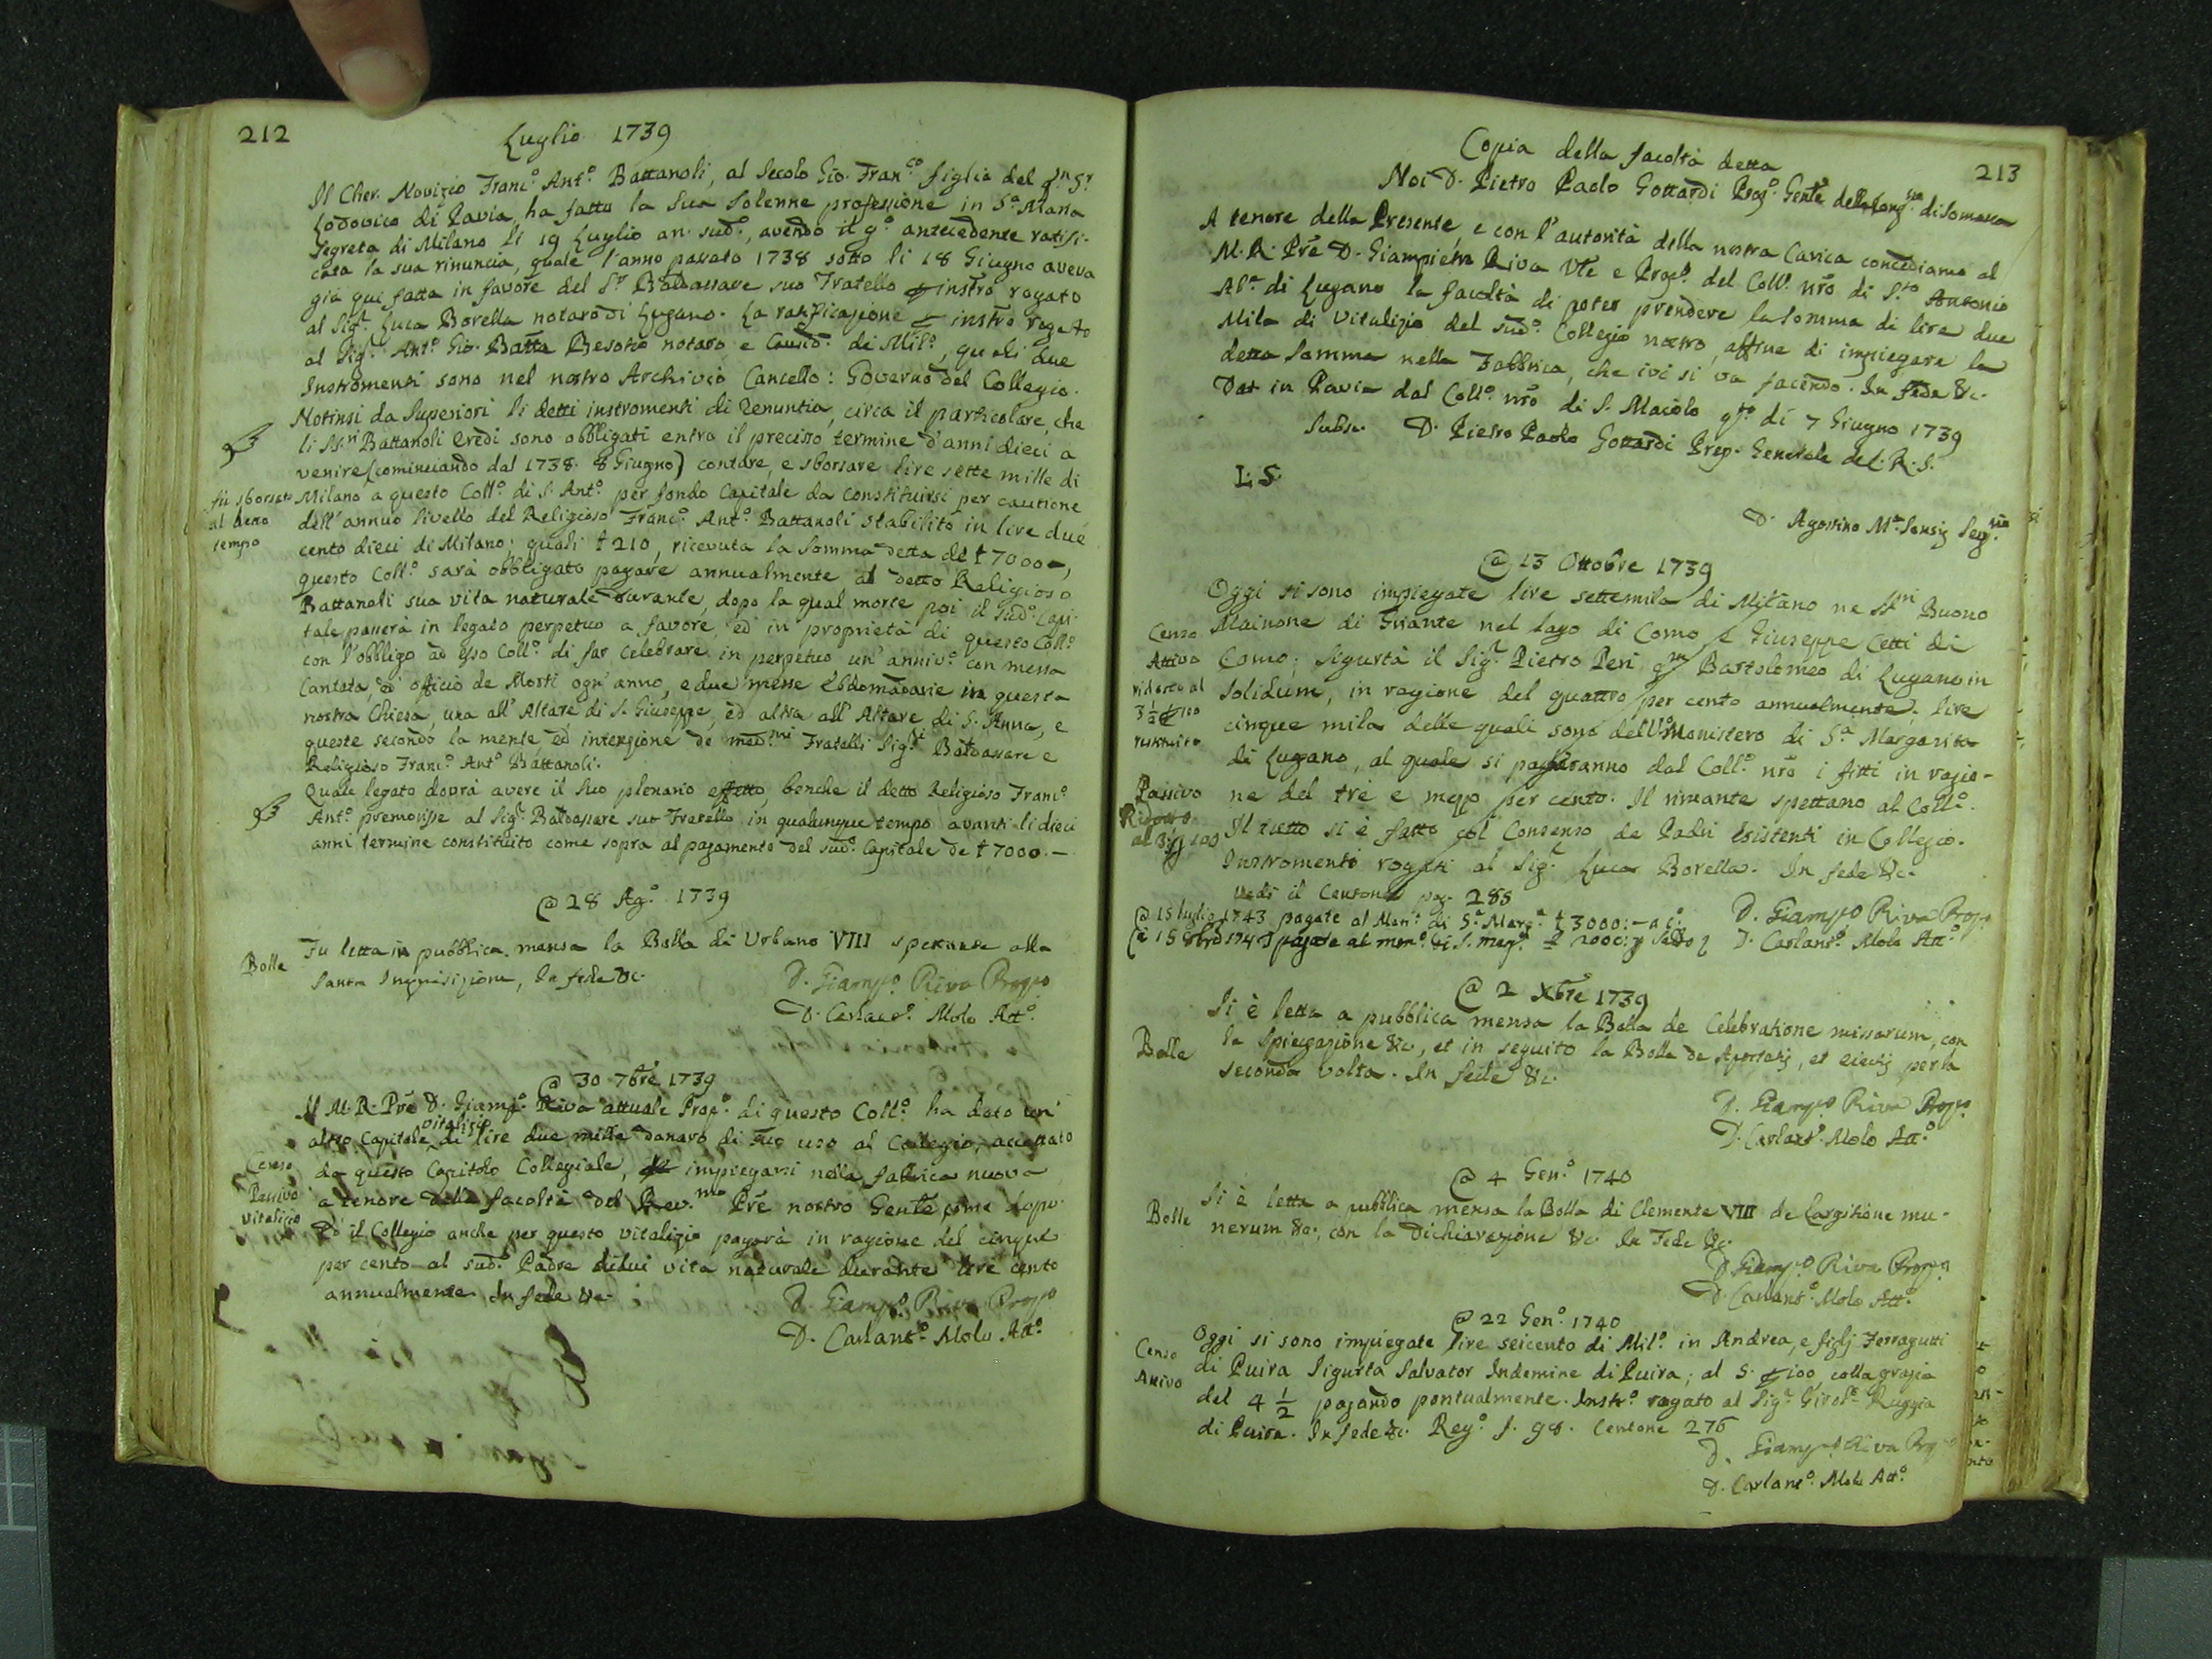 212
Luglio 1739
Il Cher. Novizio Franc.º Ant.º Battanoli, al Secolo Gio. Fran.co figlio del
Lodovico di Pavia, ha fatto la Sua Solenne professione in S.a Maria
Segreta di Milano li 19 Luglio an. sud.º, avendo il g.º antecedente ratifi-
cata la sua rinuncia, quale l'anno passato 1738 sotto li 18 Giugno aveva
già qui fatta in favore del S.r Baldassare suo Fratello instro rogato
al Sig.r Luca Borella notaro di Lugano. La ratificazione instro rogato
al Sig.r Ant.º Gio. Batta Besotio notaro e Causid.º di Mil.º, quali due
Instromenti sono nel nostro Archivio Cancello: Governo del Collegio.
Notinsi da Superiori li detti instromenti di renuntia, circa il particolare, che
li SS.ri Battanoli eredi sono obbligati entro il preciso termine d'anni dieci a
venire (cominciando dal 1738. 8 Giugno) contare, e sborsare lire sette mille di
fù sborsato
al detto
tempo
Milano a questo Coll.º di S. Ant.º per fondo Capitale da constituirsi per cautione
dell'annuo livello del Religioso Franc.º Ant.º Battanoli stabilito in lire due
cento dieci di Milano; quali ł 210, ricevuta la Somma detta de ł 7000-,
questo Coll.º sarà obbligato pagare annualmente al detto Religioso
Battanoli sua vita naturale durante, dopo la qual morte poi il sud.º Capi-
tale passerà in legato perpetuo a favore, ed in proprietà di questo Coll.º
con l'obbligo ad esso Coll.º di far celebrare in perpetuo un' anniv.º con messa
Cantata, ed officio de Morti ogn' anno, e due messe Ebdomadarie in questa
nostra Chiesa, una all' Altare di S. Giuseppe, ed altra all' Altare di S. Anna, e
queste secondo la mente ed intenzione de med.mi Fratelli Sig.ri Baldassare e
Religioso Franc.º Ant.º Battanoli.
Quale legato dovrà avere il suo plenario effetto, benche il detto Religioso Franc.º
Ant.º premorisse al Sig.r Baldassare suo Fratello in qualunque tempo avanti li dieci
anni termine constituito come sopra al pagamento del sud.º Capitale de ł 7000.-
@ 28 Ag.º 1739
Bolle
Fu letta in pubblica mensa la Bolla di Urbano VIII spettante alla
Santa Inquisizione, In fede &c.
D. Giamp.º Riva Prop.º
D. Carlant.º Molo Att.º
@ 30 7bre 1739
Il M.R. Prē D. Giamp.º Riva attuale Prop.º di questo Coll.º ha dato un'
altro Capitale vitalizio di lire due mille danaro di suo uso al Collegio, accettato
Censo
Passivo
vitalizio
da questo Capitolo Collegiale, impiegarsi nella fabrica nuova
a tenore della facoltà del Rev.mo Prē nostro Genle come sopra
Ed il Collegio anche per questo vitalizio pagarà in ragione del cinque
per cento al sud.º Padre di lui vita naturale durante lire cento
annualmente. In fede &c.
D. Giamp.º Riva Prop.º
D. Carlant.º Molo Att.º
213
Copia della facoltà detta
Noi D. Pietro Paolo Gottardi Prep.º Genle della Cong.ne di Somasca
A tenore della Presente, e con l'autorità della nostra Carica concediamo al
M.R. Prē D. Giampietro Riva Vle e Prop.º del Coll.º nrō di S.to Antonio
Ab.e di Lugano la facoltà di poter prendere la somma di lire due
Mila di Vitalizio del sud.º Collegio nostro, affine di impiegare la
detta Somma nella Fabbrica, che ivi si va facendo. In Fede &c.
Dat in Pavia dal Coll.º nrō di S. Maiolo q.to di 7 Giugno 1739
Subsc. D. Pietro Paolo Gottardi Prep. Generale de C.R.S.
L. S.
D. Agostino M.a Seg.rio
@ 13 Ottobre 1739
Oggi si sono impiegate lire settemila di Milano ne SS.ri Buono
Censo
Attivo
ridotto al
3 ½ 100
restituito
Mainone di Griante nel lago di Como e Giuseppe Cetti di
Como; sigurtà il Sig.r Pietro Peri q.m Bartolomeo di Lugano in
Solidum, in ragione del quattro per cento annualmente; lire
cinque mila delle quali sono del V. Monistero di S.a Margarita
di Lugano, al quale si pagaranno dal Coll.º nrō i fitti in ragio-
Passivo
Ridotto
ne del tre e mezzo per cento. Il rimante spettano al Coll.º.
Il tutto si è fatto col Consenso de Padri esistenti in Collegio.
Instromenti rogati al Sig.r Luca Borella. In fede &c.
vedi il Centone pag. 285
@ 15 luglio 1743 pagate al Mon.º di S.a Marg.a ł 3000:-
D. Giamp.º Riva Prop.º
D. Carlant.º Molo Att.º
@ 2 Xbre 1739
Bolle
Si è letta a pubblica mensa la Bolla de Celebratione missarum, con
la Spiegazione &c, et in seguito la Bolla de Apostatis, et eiectis per la
seconda volta. In fede &c.
D. Giamp.º Riva Prop.º
D. Carlant.º Molo Att.º
@ 4 Gen.º 1740
Bolle
Si è letta a pubblica mensa la Bolla di Clemente VIII de Largitione mu-
nerum &c., con la Dichiarazione &c. In Fede &c.
D. Giamp.º Riva Prop.º
D. Carlant.º Molo Att.º
@ 22 Gen.º 1740
Censo
Attivo
Oggi si sono impiegate lire seicento di Mil.º in Andrea, e figlj Ferragutti
di Puira Sigurtà Salvator Indemine di Puira; al 5. 100, colla grazia
del 4 ½ pagando pontualmente. Instr.º rogato al Sig.r Girol.º Ruggia
di Puira. In fede &c. Reg.º f. 98. Centone 276
D. Giamp.º Riva Prop.º
D. Carlant.º Molo Att.º